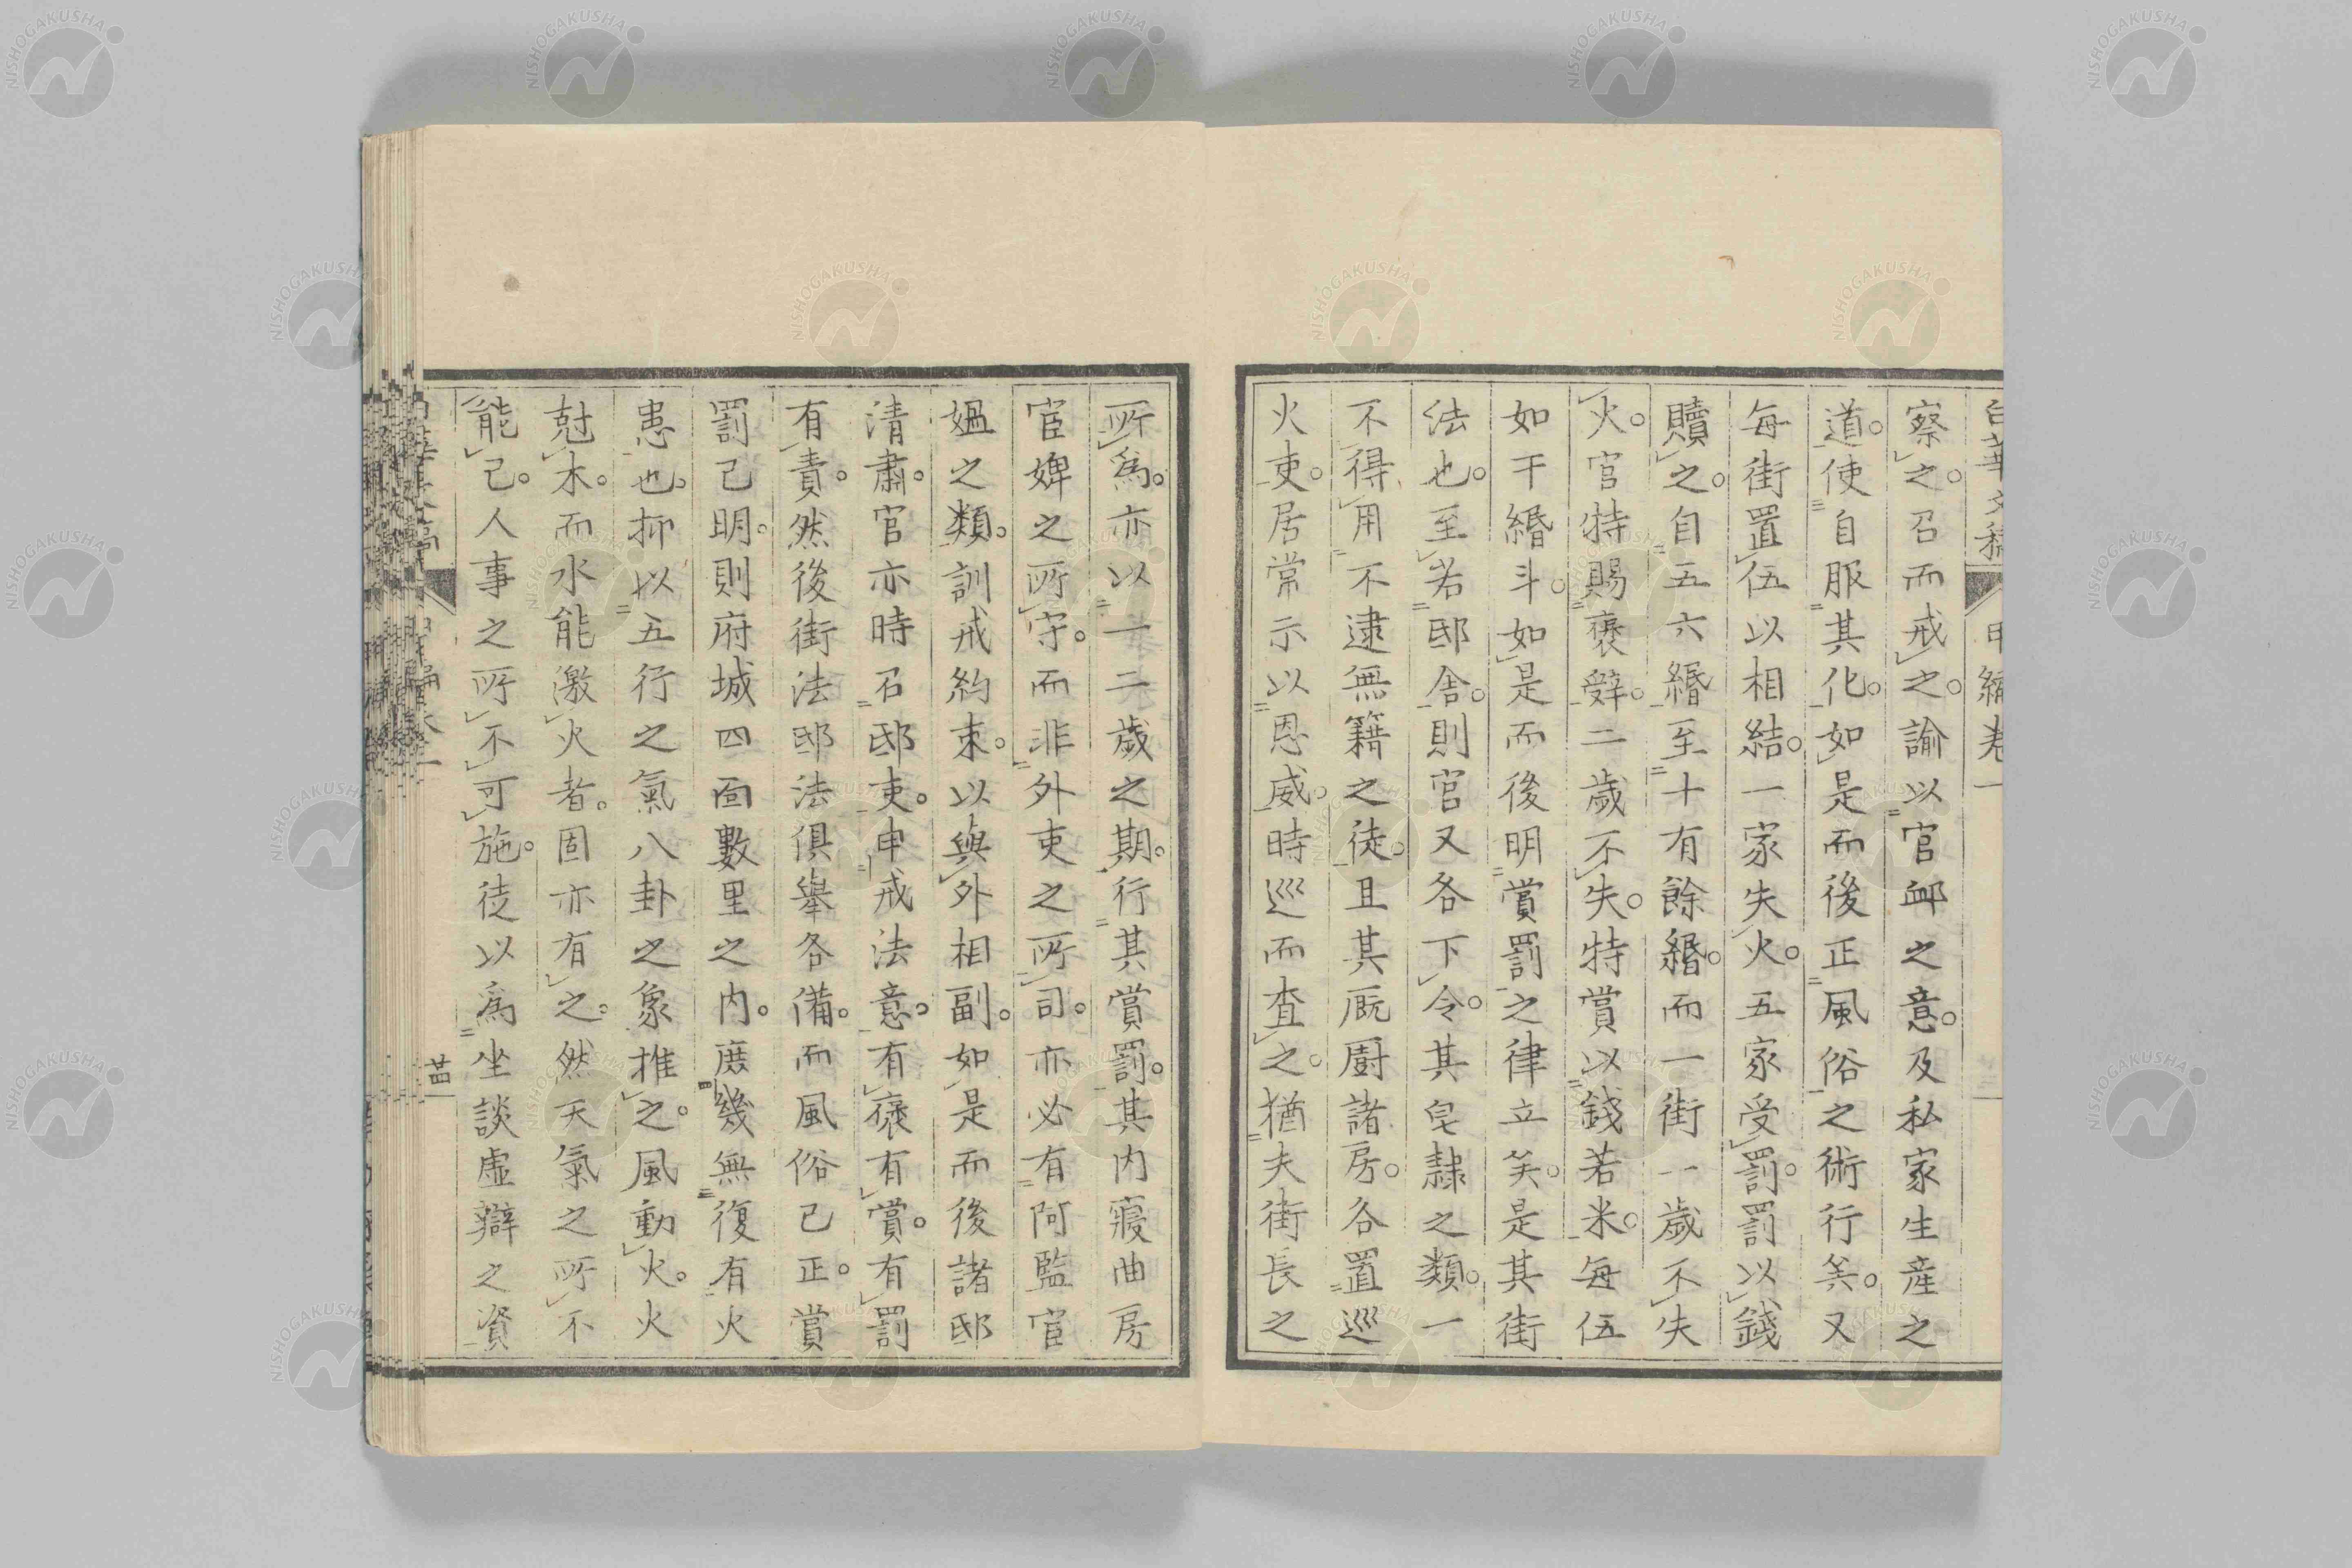 白華文稿 甲編卷一
察之。召而戒之。諭以官衈之意。及私家生産之
道。使自服其化。如是而後正風俗之術行矣。又
每街置伍以相結。一家失火。五家受罰。罰以錢
贖之。自五六緡至十有餘緡。而一街一歲不失
火。官特賜褒辤。二歲不失。特賞以錢若米。每伍
如干緡斗。如是而後明賞罰之律立矣。是其街
法也。至若邸舍。則官又各下令。其皂隷之類。一
不得用不逮無籍之徒。且其厩廚諸房。各置巡
火吏。居常示以恩威。時巡而査之。猶夫街長之
所爲。亦以一二歲之期。行其賞罰。其内寢曲房
宦婢之所守。而非外吏之所司。亦必有阿監宦
媼之類。訓戒約束。以與外相副。如是而後諸邸
清肅。官亦時召邸吏。申戒法意。有褒有賞。有罰
有責。然後街法邸法俱舉各備。而風俗已正。賞
罰已明。則府城四面數里之内。庶幾無復有火
患也。抑以五行之氣八卦之象推之。風動火。火
尅木。而水能激火者。固亦有之。然天氣之所不
能已。人事之所不可施。徒以爲坐談虛辯之資
廿四
NISHOGAKUSHA